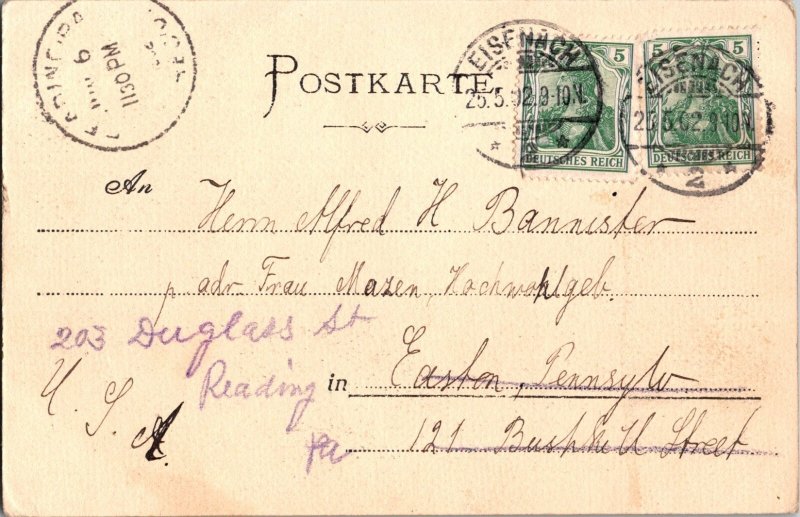 POSTKARTE
5
DEUTSCHES REICH
5 5
DEUTSCHES REICH
EISENACH
25.5.02.9-10N.
EISENACH
25.5.02.9-10N.
2
6
1130PM
An
Herrn Alfred H Bannister
adr. Frau Mazen, Hochwohlgeb.
203 Duglass St
Reading
Pa
in Easton, Pennsylv
121 Bushkill Street
U. S. A.